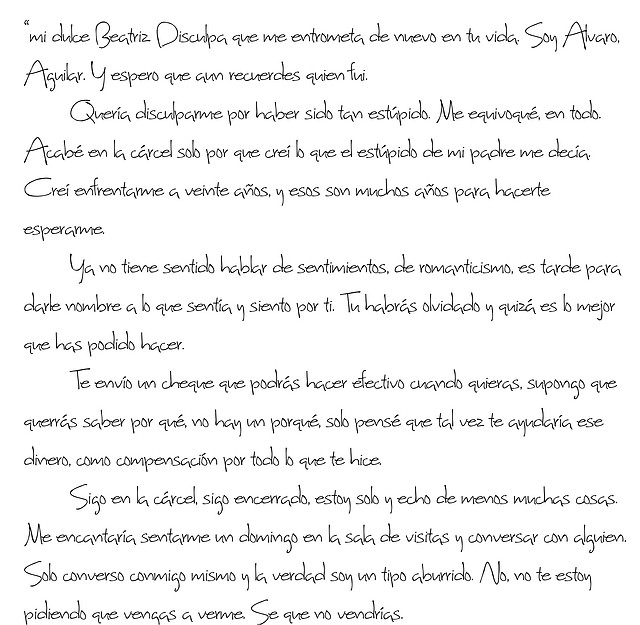 “mi dulce Beatriz Disculpa que me entrometa de nuevo en tu vida. Soy Alvaro,
Aguilar. Y espero que aun recuerdes quien fui.
Quería disculparme por haber sido tan estúpido. Me equivoqué, en todo.
Acabé en la cárcel solo por que creí lo que el estúpido de mi padre me decía.
Creí enfrentarme a veinte años, y esos son muchos años para hacerte
esperarme.
Ya no tiene sentido hablar de sentimientos, de romanticismo, es tarde para
darle nombre a lo que sentía y siento por ti. Tu habrás olvidado y quizá es lo mejor
que has podido hacer.
Te envío un cheque que podrás hacer efectivo cuando quieras, supongo que
querrás saber por qué, no hay un porqué, solo pensé que tal vez te ayudaría ese
dinero, como compensación por todo lo que te hice.
Sigo en la cárcel, sigo encerrado, estoy solo y echo de menos muchas cosas.
Me encantaría sentarme un domingo en la sala de visitas y conversar con alguien.
Solo converso conmigo mismo y la verdad soy un tipo aburrido. No, no te estoy
pidiendo que vengas a verme. Se que no vendrías.